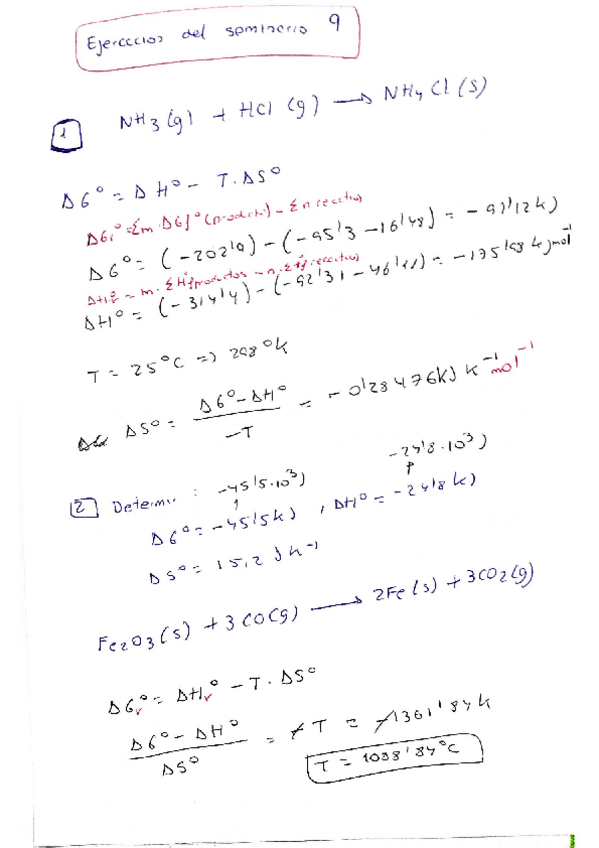 Ejercicios del seminario 9
1 NH3(g) + HCl (g) → NH4Cl (s)
ΔG° = ΔH° - T.ΔS°
ΔGr° = Σm.ΔGf°(productos) - Σn reactivos
ΔG° = (-202'9) - (-95'3 - 16'48) = -91'12 kJ
ΔHr° = m.ΣHf productos - n.ΣHf reactivos
ΔH° = (-314'4) - (-92'31 - 46'11) = -175'98 kJ mol⁻¹
T = 25°C => 298°K
ΔS° = ΔG°-ΔH° / -T = -0'28476 kJ K⁻¹ mol⁻¹
2 Determin : -45'5·10³J -24'8·10³J
ΔG° = -45'5kJ , ΔH° = -24'8 kJ
ΔS° = 15,2 J K⁻¹
Fe2O3 (s) + 3CO(g) → 2Fe (s) + 3CO2 (g)
ΔGr° = ΔHr° - T.ΔS°
ΔG° - ΔH° / ΔS° = -T = -1361'84 K
T = 1088'84°C